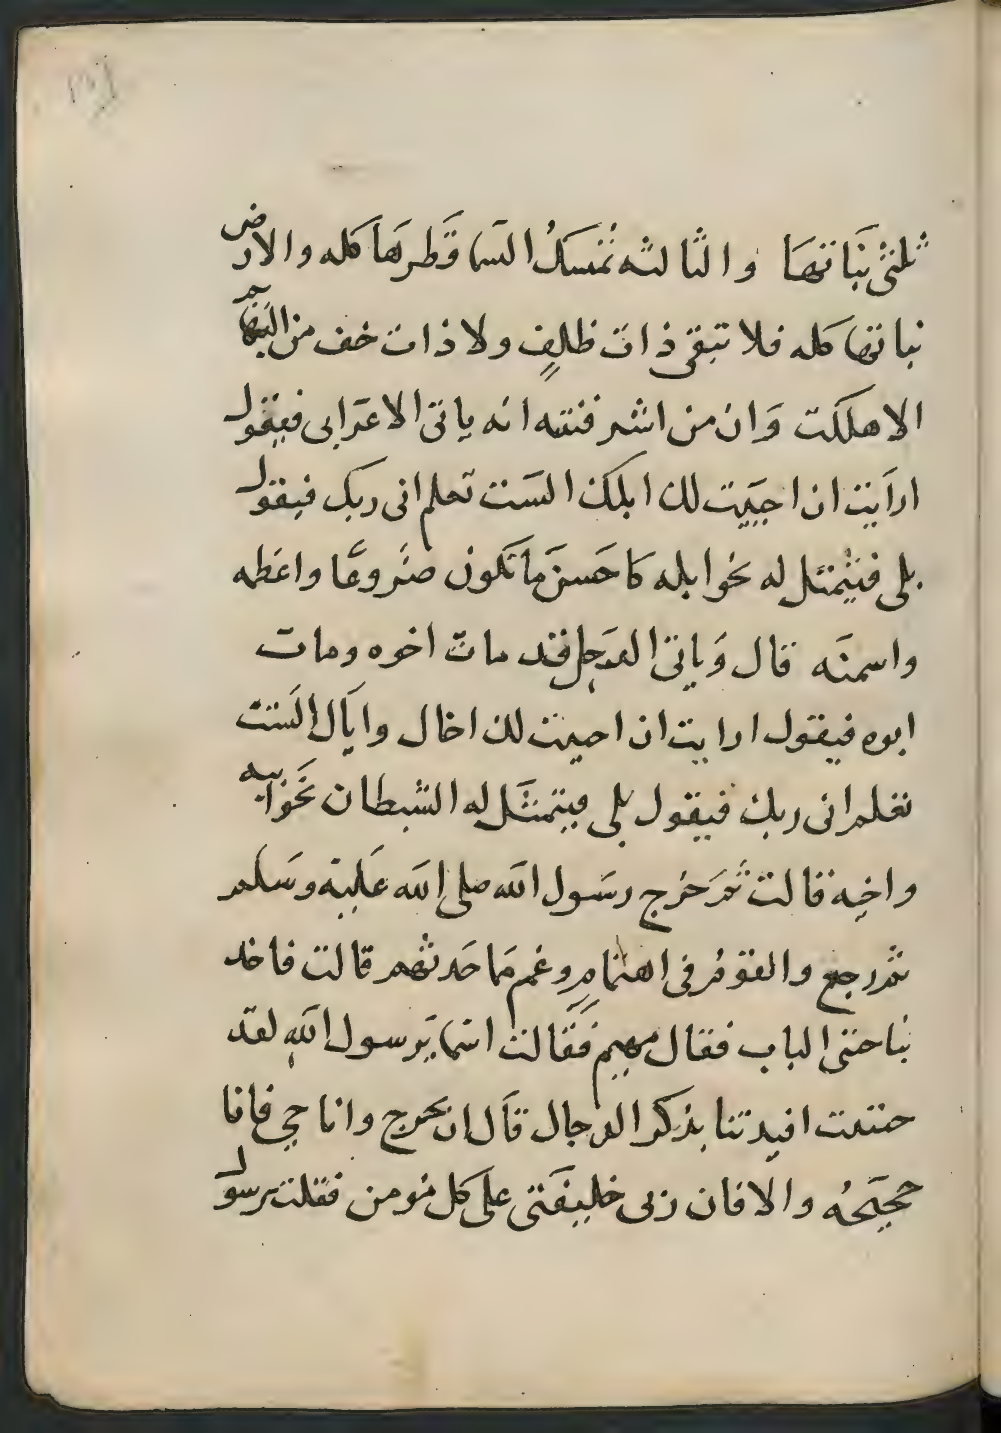 ثلثى نباتها والثالثه تمسك السما قطرها كله والارض
نباتها كله فلا تبقى ذات ظلف ولا ذات خف من البهايم
الا هلكت وان من اشر فتنته انه ياتى الاعرابى فيقول
ارايت ان احييت لك ابلك الست تعلم انى ربك فيقول
بلى فيتمثل له نحو ابله كاحسن ما تكون ضروعا واعظمه
واسمنه قال وياتى الرجل قد مات اخوه ومات
ابوه فيقول ارايت ان احييت لك اخاك واباك الست
تعلم انى ربك فيقول بلى فيتمثل له الشيطان نحو ابيه
واخيه قالت ثم خرج رسول الله صلى الله عليه وسلم
ثم رجع والقوم فى اهتمام وغم مما حدثهم قالت فاخد
بناحتى الباب فقال مهيم فقالت اسما يرسول الله لقد
خلعت افيدتنا بذكر الدجال قال ان يخرج وانا حى فانا
حجيجه والا فان ربى خليفتى على كل مومن فقلت يرسول